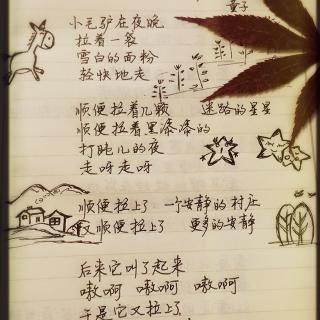 童子
小毛驴在夜晚
拉着一袋
雪白的面粉
轻快地走
顺便拉着几颗 迷路的星星
顺便拉着黑漆漆的
打盹儿的夜
走呀走呀
顺便拉上了 一个安静的村庄
又顺便拉上了 更多的安静
后来它叫了起来
嗷啊 嗷啊 嗷啊
于是它又拉上了